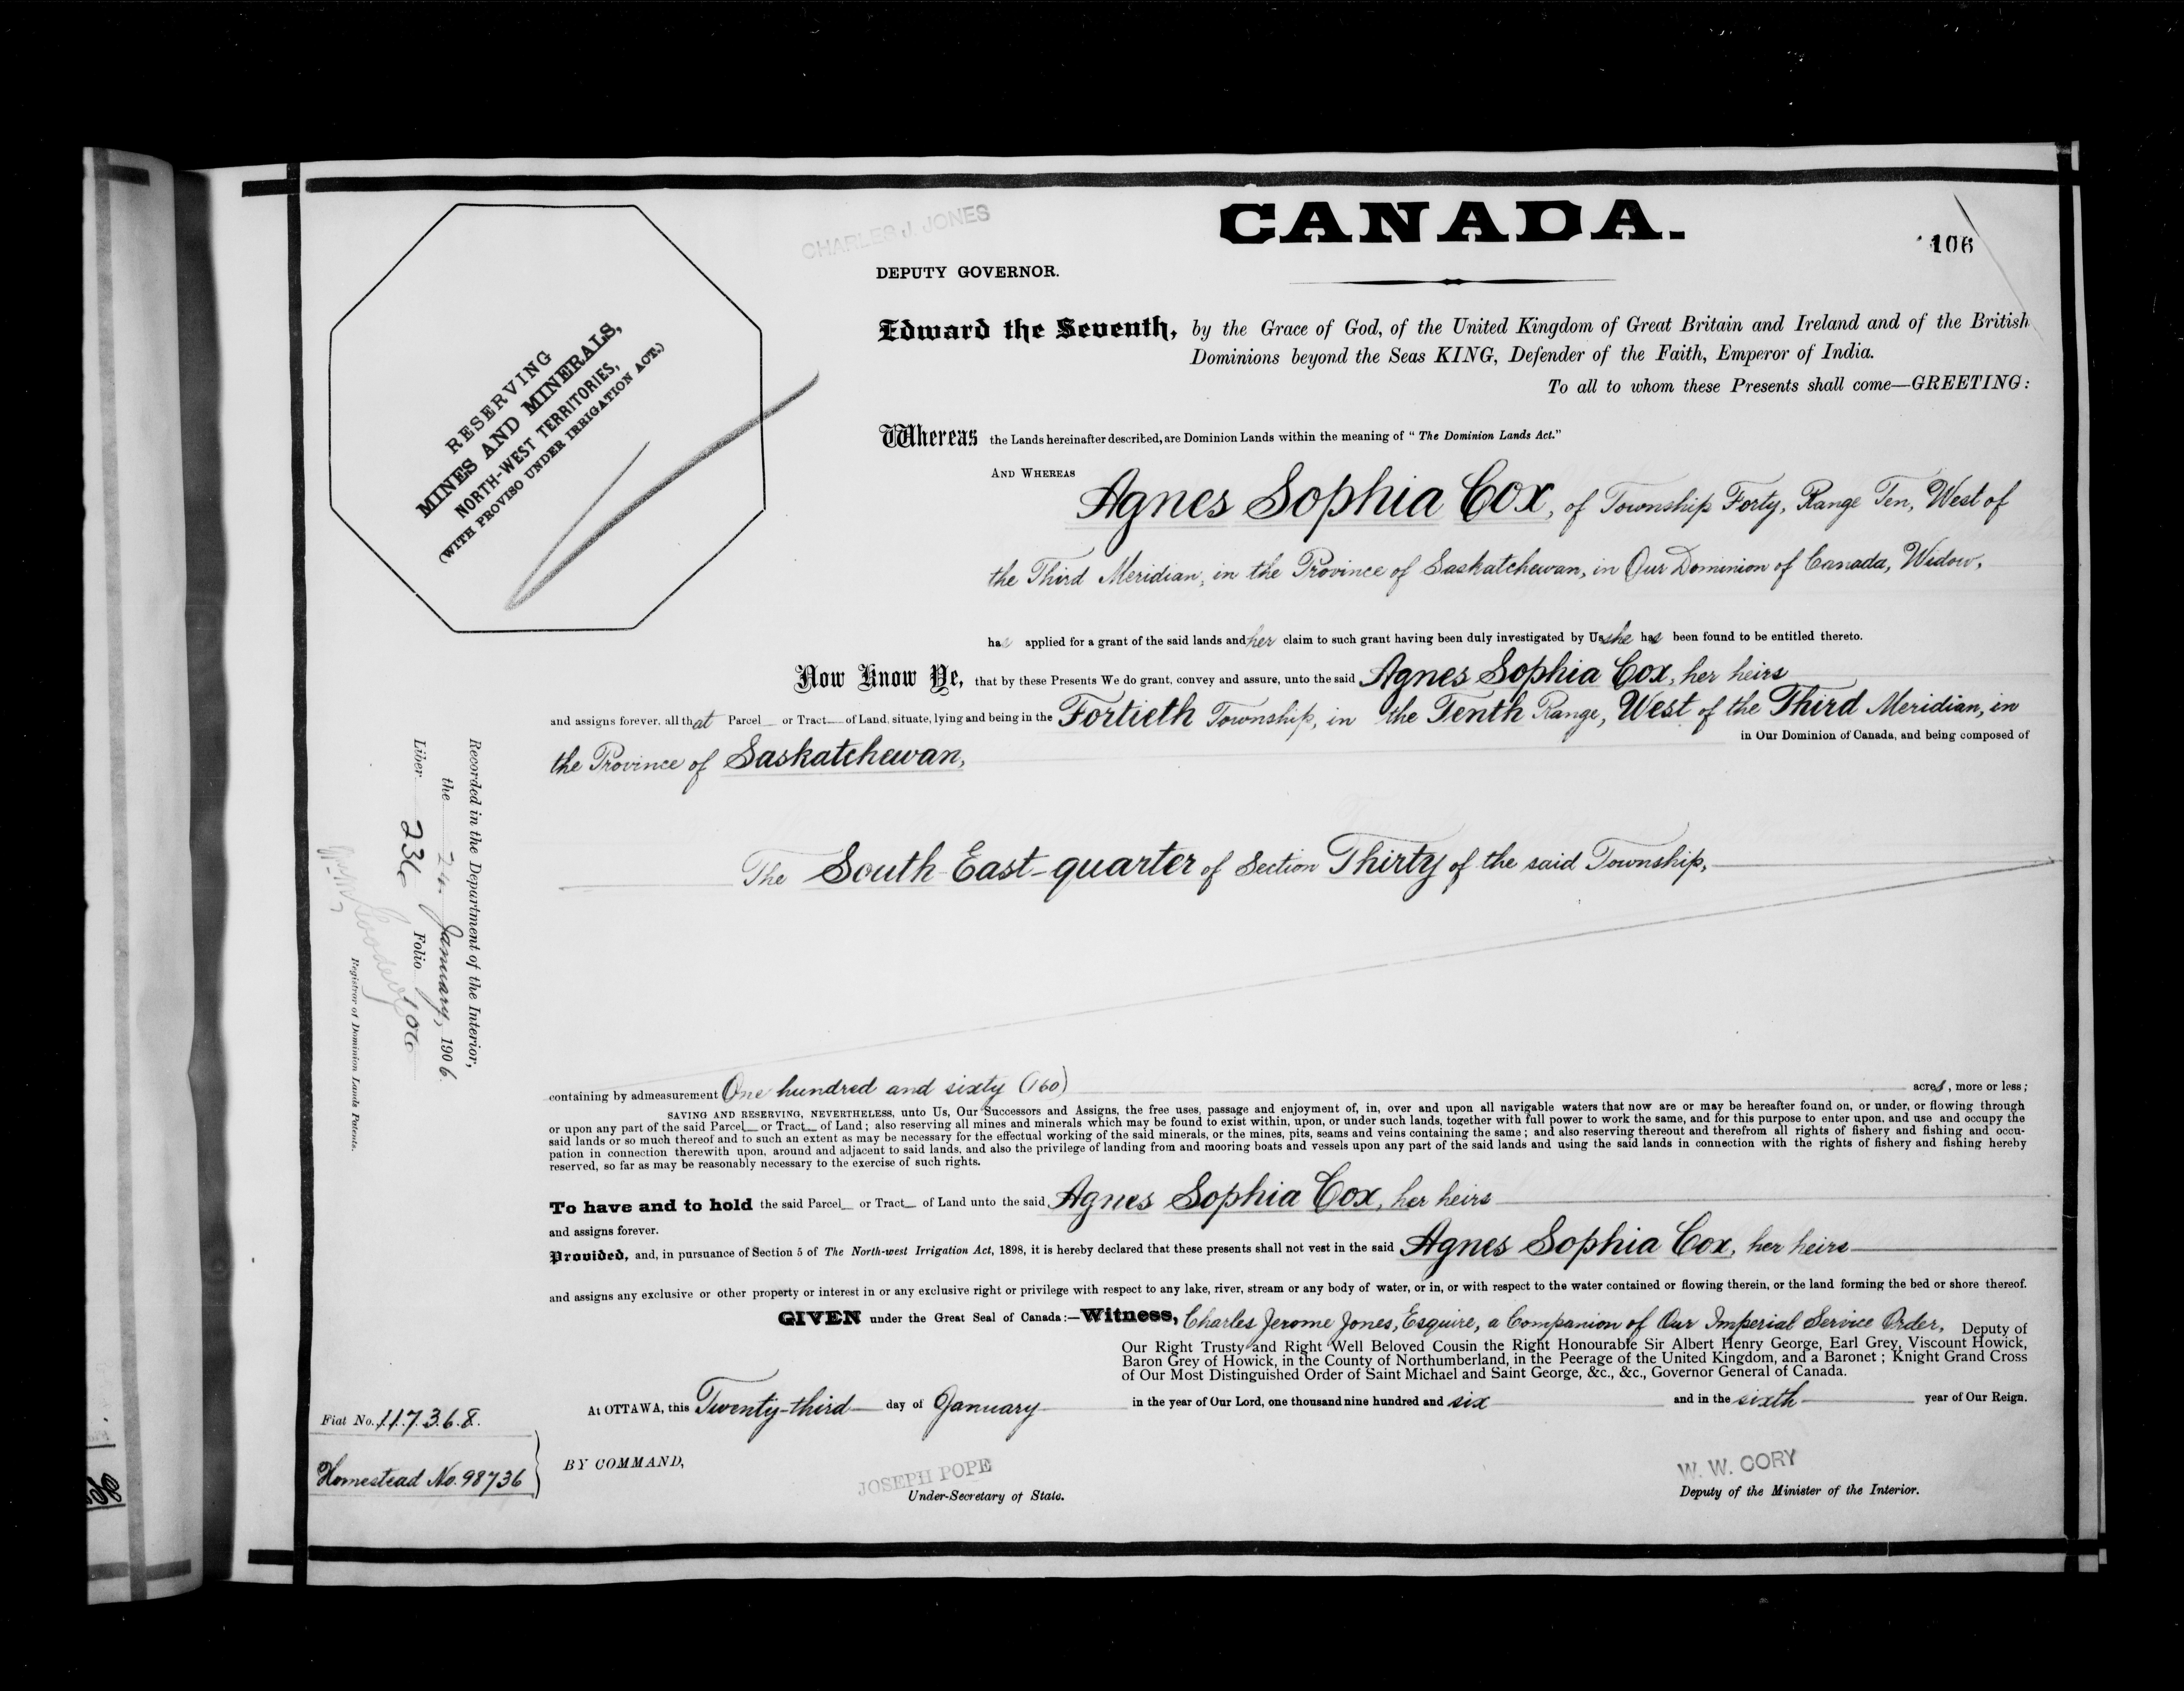 CHARLES J. JONES
CANADA.
106
DEPUTY GOVERNOR.
RESERVING
MINES AND MINERALS,
NORTH-WEST TERRITORIES,
(WITH PROVISO UNDER IRRIGATION ACT.)
Edward the Seventh, by the Grace of God, of the United Kingdom of Great Britain and Ireland and of the British
Dominions beyond the Seas KING, Defender of the Faith, Emperor of India.
To all to whom these Presents shall come—GREETING:
Whereas the Lands hereinafter described, are Dominion Lands within the meaning of "The Dominion Lands Act."
AND WHEREAS
Agnes Sophia Cox, of Township Forty, Range Ten, West of
the Third Meridian, in the Province of Saskatchewan, in Our Dominion of Canada, Widow,
has applied for a grant of the said lands and her claim to such grant having been duly investigated by Us she has been found to be entitled thereto.
Now Know Ye, that by these Presents We do grant, convey and assure, unto the said Agnes Sophia Cox, her heirs
and assigns forever, all that Parcel or Tract of Land, situate, lying and being in the Fortieth Township, in the Tenth Range, West of the Third Meridian, in
in Our Dominion of Canada, and being composed of
the Province of Saskatchewan,
The South East-quarter of Section Thirty of the said Township,
Recorded in the Department of the Interior,
the 24 January, 1906.
Liber 236 Folio 106
Registrar of Dominion Lands Patents.
containing by admeasurement One hundred and sixty (160) acres, more or less;
SAVING AND RESERVING, NEVERTHELESS, unto Us, Our Successors and Assigns, the free uses, passage and enjoyment of, in, over and upon all navigable waters that now are or may be hereafter found on, or under, or flowing through
or upon any part of the said Parcel or Tract of Land; also reserving all mines and minerals which may be found to exist within, upon, or under such lands, together with full power to work the same, and for this purpose to enter upon, and use and occupy the
said lands or so much thereof and to such an extent as may be necessary for the effectual working of the said minerals, or the mines, pits, seams and veins containing the same; and also reserving thereout and therefrom all rights of fishery and fishing and occu-
pation in connection therewith upon, around and adjacent to said lands, and also the privilege of landing from and mooring boats and vessels upon any part of the said lands and using the said lands in connection with the rights of fishery and fishing hereby
reserved, so far as may be reasonably necessary to the exercise of such rights.
To have and to hold the said Parcel or Tract of Land unto the said Agnes Sophia Cox, her heirs
and assigns forever.
Provided, and, in pursuance of Section 5 of The North-west Irrigation Act, 1898, it is hereby declared that these presents shall not vest in the said Agnes Sophia Cox, her heirs
and assigns any exclusive or other property or interest in or any exclusive right or privilege with respect to any lake, river, stream or any body of water, or in, or with respect to the water contained or flowing therein, or the land forming the bed or shore thereof.
GIVEN under the Great Seal of Canada:—Witness, Charles Jerome Jones, Esquire, a Companion of Our Imperial Service Order, Deputy of
Our Right Trusty and Right Well Beloved Cousin the Right Honourable Sir Albert Henry George, Earl Grey, Viscount Howick,
Baron Grey of Howick, in the County of Northumberland, in the Peerage of the United Kingdom, and a Baronet; Knight Grand Cross
of Our Most Distinguished Order of Saint Michael and Saint George, &c., &c., Governor General of Canada.
At OTTAWA, this Twenty-third day of January in the year of Our Lord, one thousand nine hundred and six and in the sixth year of Our Reign.
Fiat No. 117368.
Homestead No. 98736
BY COMMAND,
JOSEPH POPE
Under-Secretary of State.
W. W. CORY
Deputy of the Minister of the Interior.